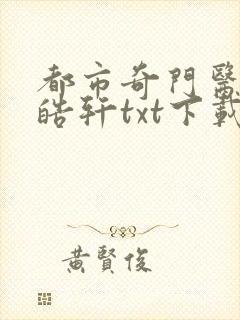 都市奇門醫
皓轩txt下載
黃賢俊